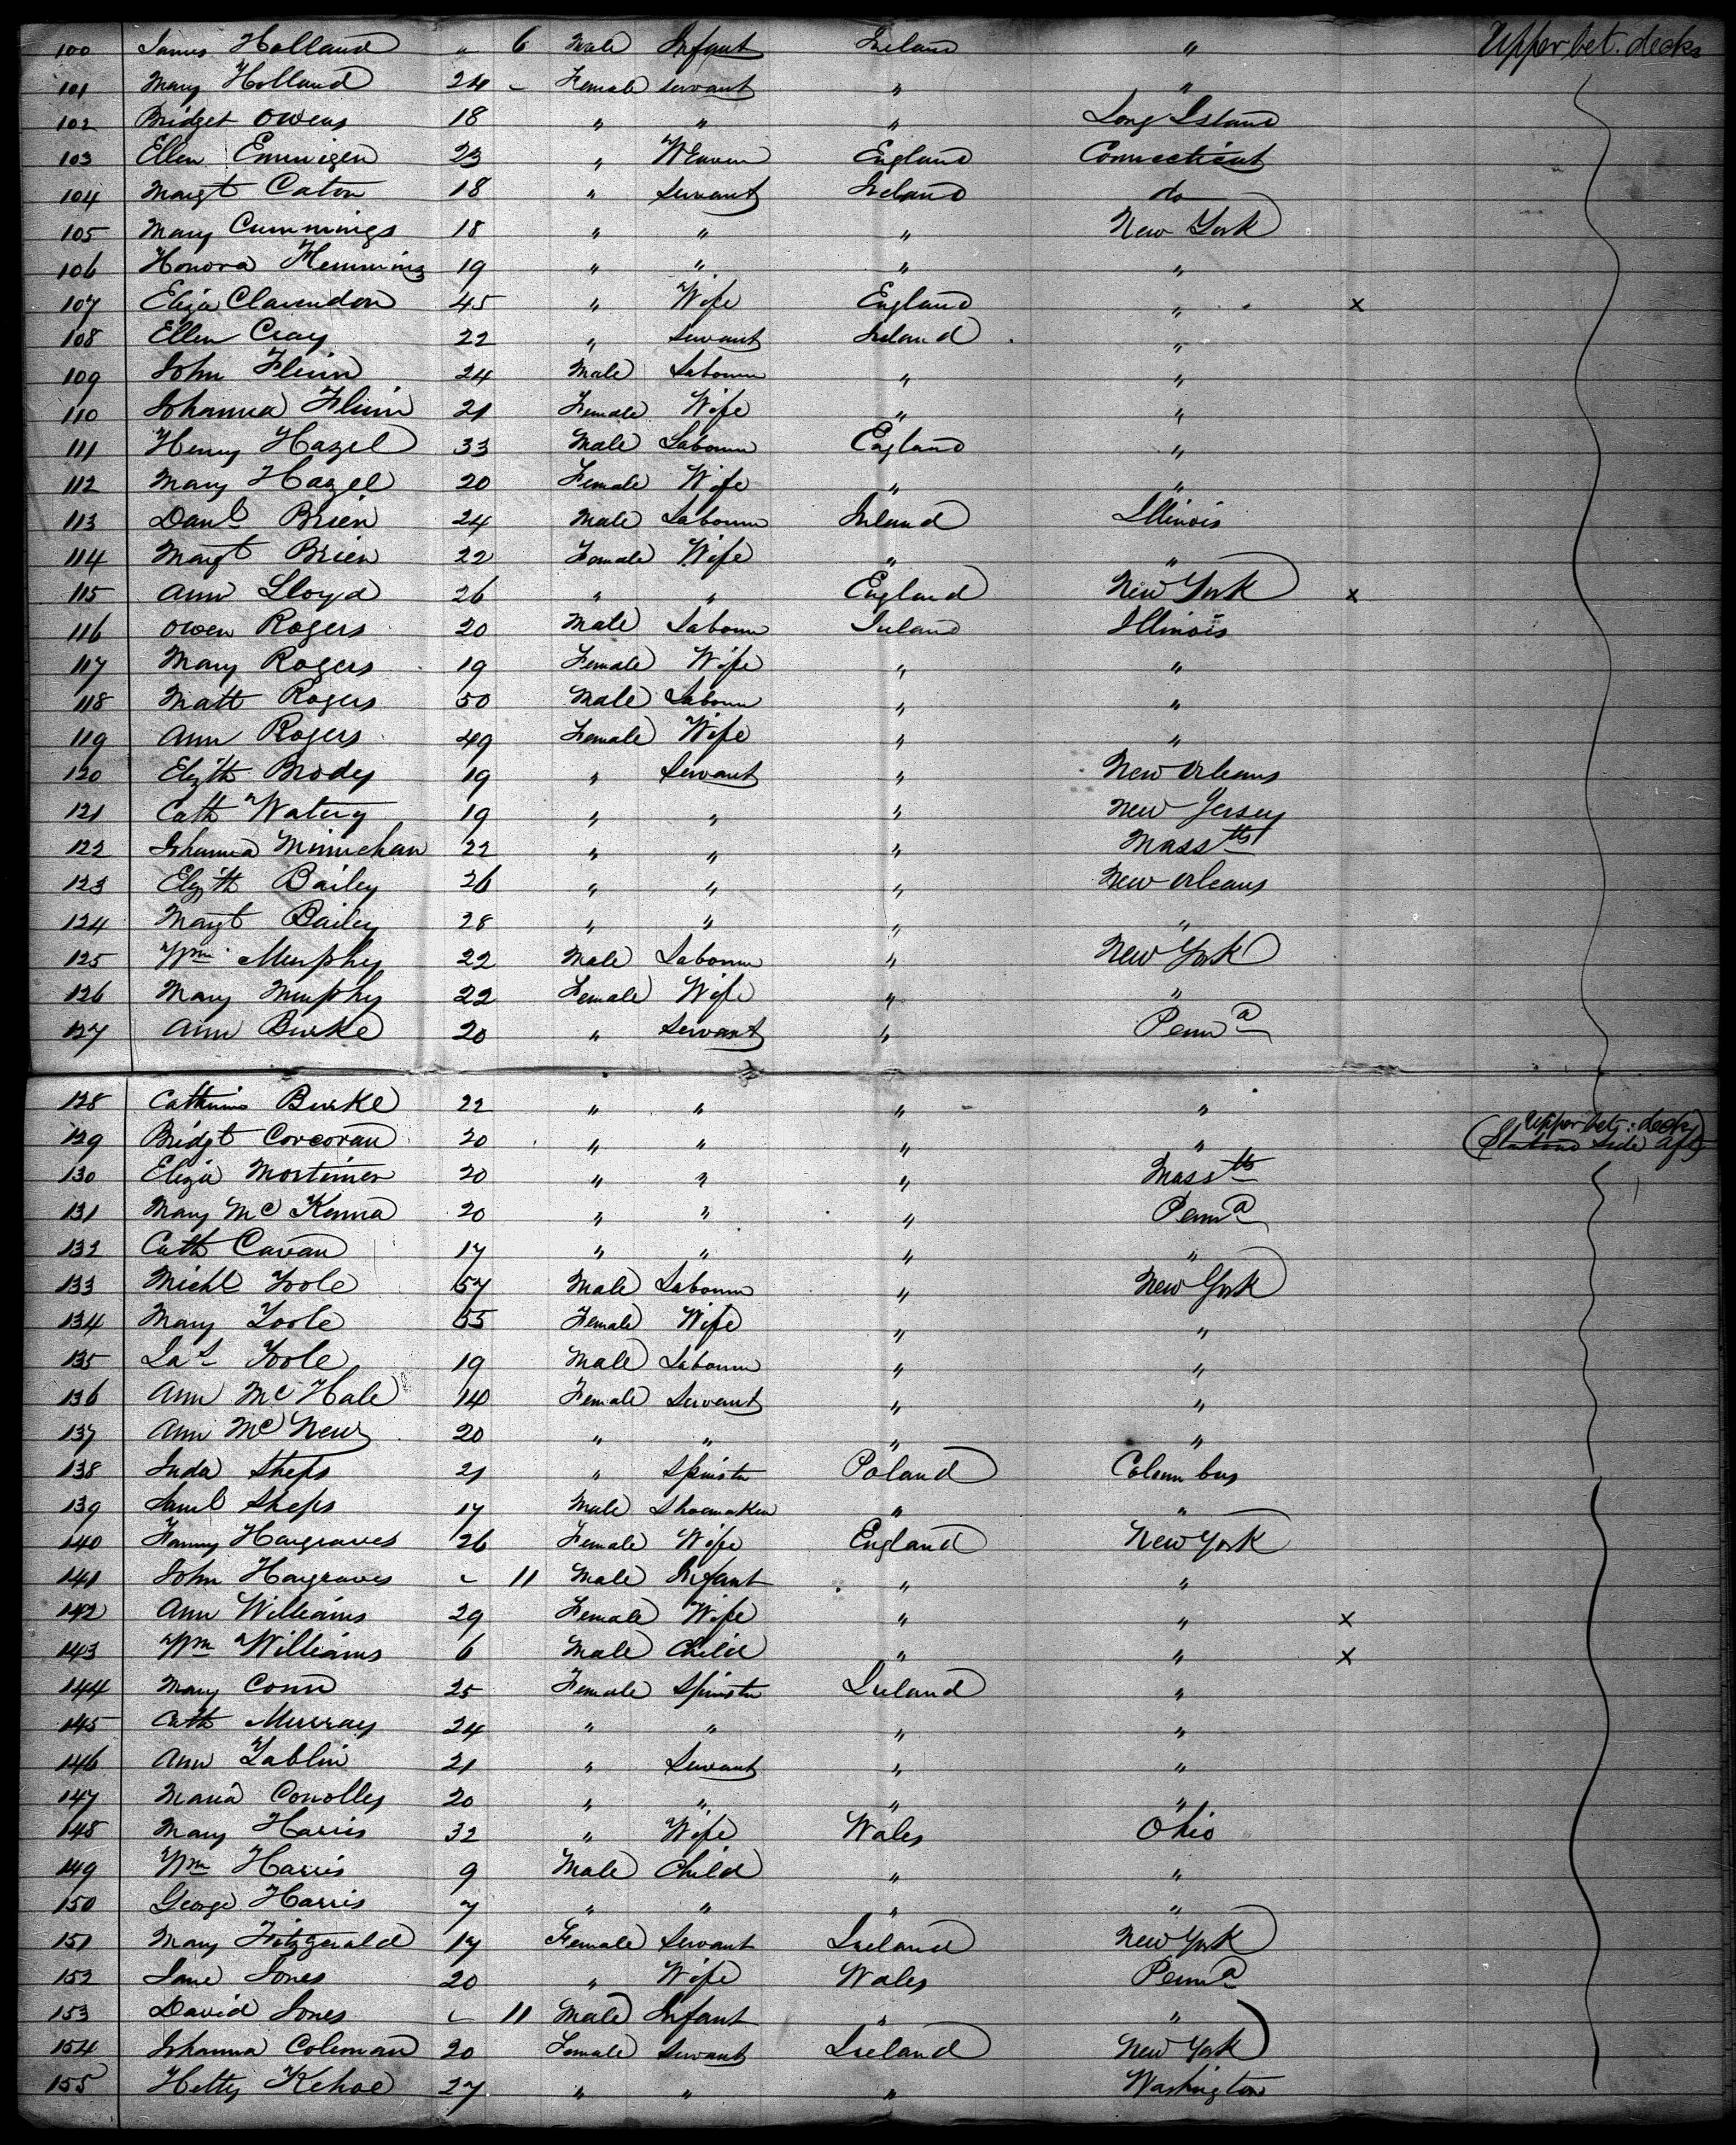 100 James Holland " 6 Male Infant Ireland " Upper bet. decks
101 Mary Holland 24 - Female Servant " "
102 Bridget Owens 18 " " " Long Island
103 Ellen 23 " Weaver England Connecticut
104 Margt Caton 18 " Servant Ireland do
105 Mary Cummings 18 " " " New York
106 Honora Flemming 19 " " " "
107 Eliza Clarendon 45 " Wife England " x
108 Ellen Cray 22 " Servant Ireland "
109 John Flinn 24 Male Labourer " "
110 Johanna Flinn 21 Female Wife " "
111 Henry Hazel 33 Male Labourer England "
112 Mary Hazel 20 Female Wife " "
113 Danl Brien 24 Male Labourer Ireland Illinois
114 Margt Brien 22 Female Wife " "
115 Ann Lloyd 26 " " England New York x
116 Owen Rogers 20 Male Labourer Ireland Illinois
117 Mary Rogers 19 Female Wife " "
118 Matt Rogers 50 Male Labourer " "
119 Ann Rogers 49 Female Wife " "
120 Elizth Brody 19 " Servant " New Orleans
121 Cath 19 " " " New Jersey
122 Johanna Minnehan 22 " " " Masstts
123 Elizth Bailey 26 " " " New Orleans
124 Margt Bailey 28 " " " "
125 Wm Murphy 22 Male Labourer " New York
126 Mary Murphy 22 Female Wife " "
127 Ann Burke 20 " Servant " Penna
128 Catherine Burke 22 " " " "
129 Bridgt Corcoran 20 " " " " Upper bet: decks
(Starboard Side aft)
130 Eliza Mortimer 20 " " " Masstts
131 Mary McKenna 20 " " " Penna
132 Cath Cavan 17 " " " "
133 Michl Toole 57 Male Labourer " New York
134 Mary Toole 55 Female Wife " "
135 Jas Toole 19 Male Labourer " "
136 Ann McHale 14 Female Servant " "
137 Ann McNew 20 " " " "
138 Juda Sheps 21 " Spinster Poland Columbus
139 Saml Sheps 17 Male Shoemaker " "
140 Fanny Hargraves 26 Female Wife England New York
141 John Hargraves " 11 Male Infant " "
142 Ann Williams 29 Female Wife " " x
143 Wm Williams 6 Male Child " " x
144 Mary Conn 25 Female Spinster Ireland "
145 Cath Murray 24 " " " "
146 Ann 21 " Servant " "
147 Maria Conolley 20 " " " "
148 Mary Harris 32 " Wife Wales Ohio
149 Wm Harris 9 Male Child " "
150 George Harris 7 " " " "
151 Mary Fitzgerald 17 Female Servant Ireland New York
152 Jane Jones 20 " Wife Wales Penna
153 David Jones " 11 Male Infant " "
154 Johanna Coleman 20 Female Servant Ireland New York
155 Hetty Kehoe 27 " " " Washington